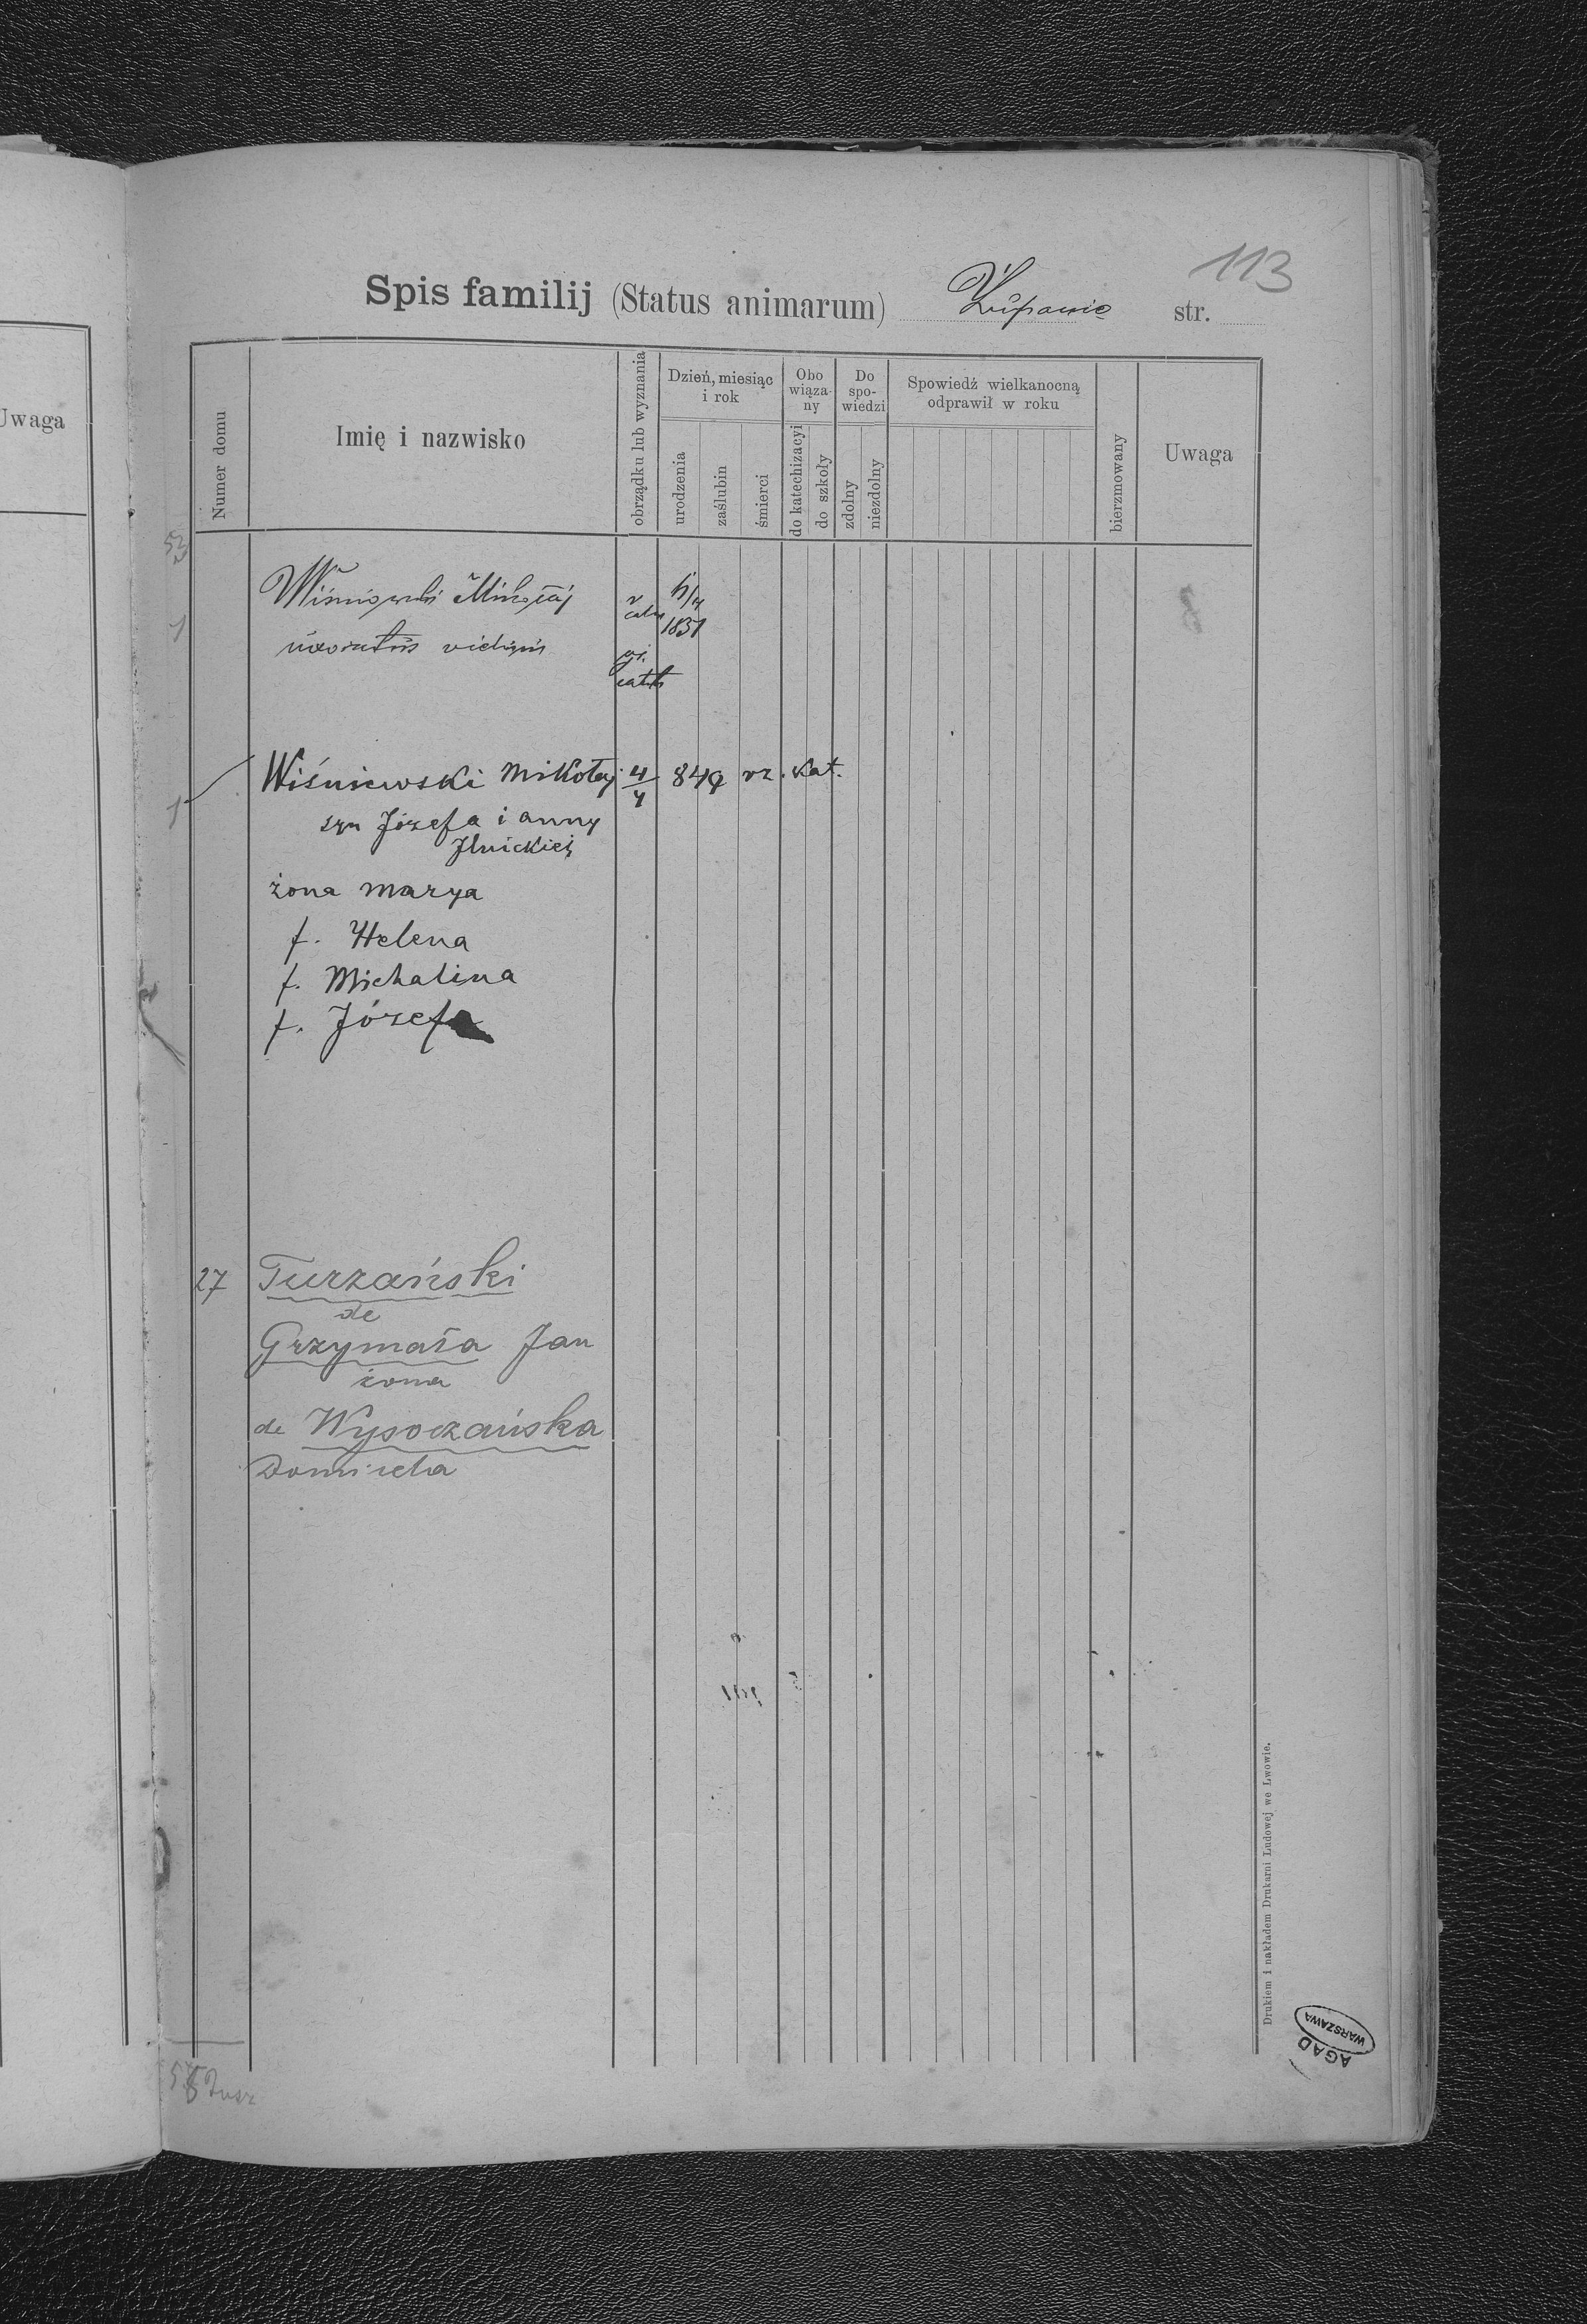 113
Spis familij (Status animarum) Żupanie str.
Uwaga
Numer domu
Imię i nazwisko
obrządku lub wyznania
Dzień, miesiąc i rok
urodzenia
zaślubin
śmierci
Obowiązany
do katechizacyi
do szkoły
Do spowiedzi
zdolny
niezdolny
Spowiedź wielkanocną odprawił w roku
bierzmowany
Uwaga
53
Wiśniowski Mikołaj
1831
1
uxoratus
gr.
cath
1 Wiśniewski Mikołaj 4/4 849 rz. kat.
syn Józefa i anny
Ilnickiej
żona Marya
f. Helena
f. Michalina
f. Józefa
27 Turzański
de
Grzymała Jan
żona
de Wysoczańska
Domicela
Drukiem i nakładem Drukarni Ludowej we Lwowie.
AGAD
WARSZAWA